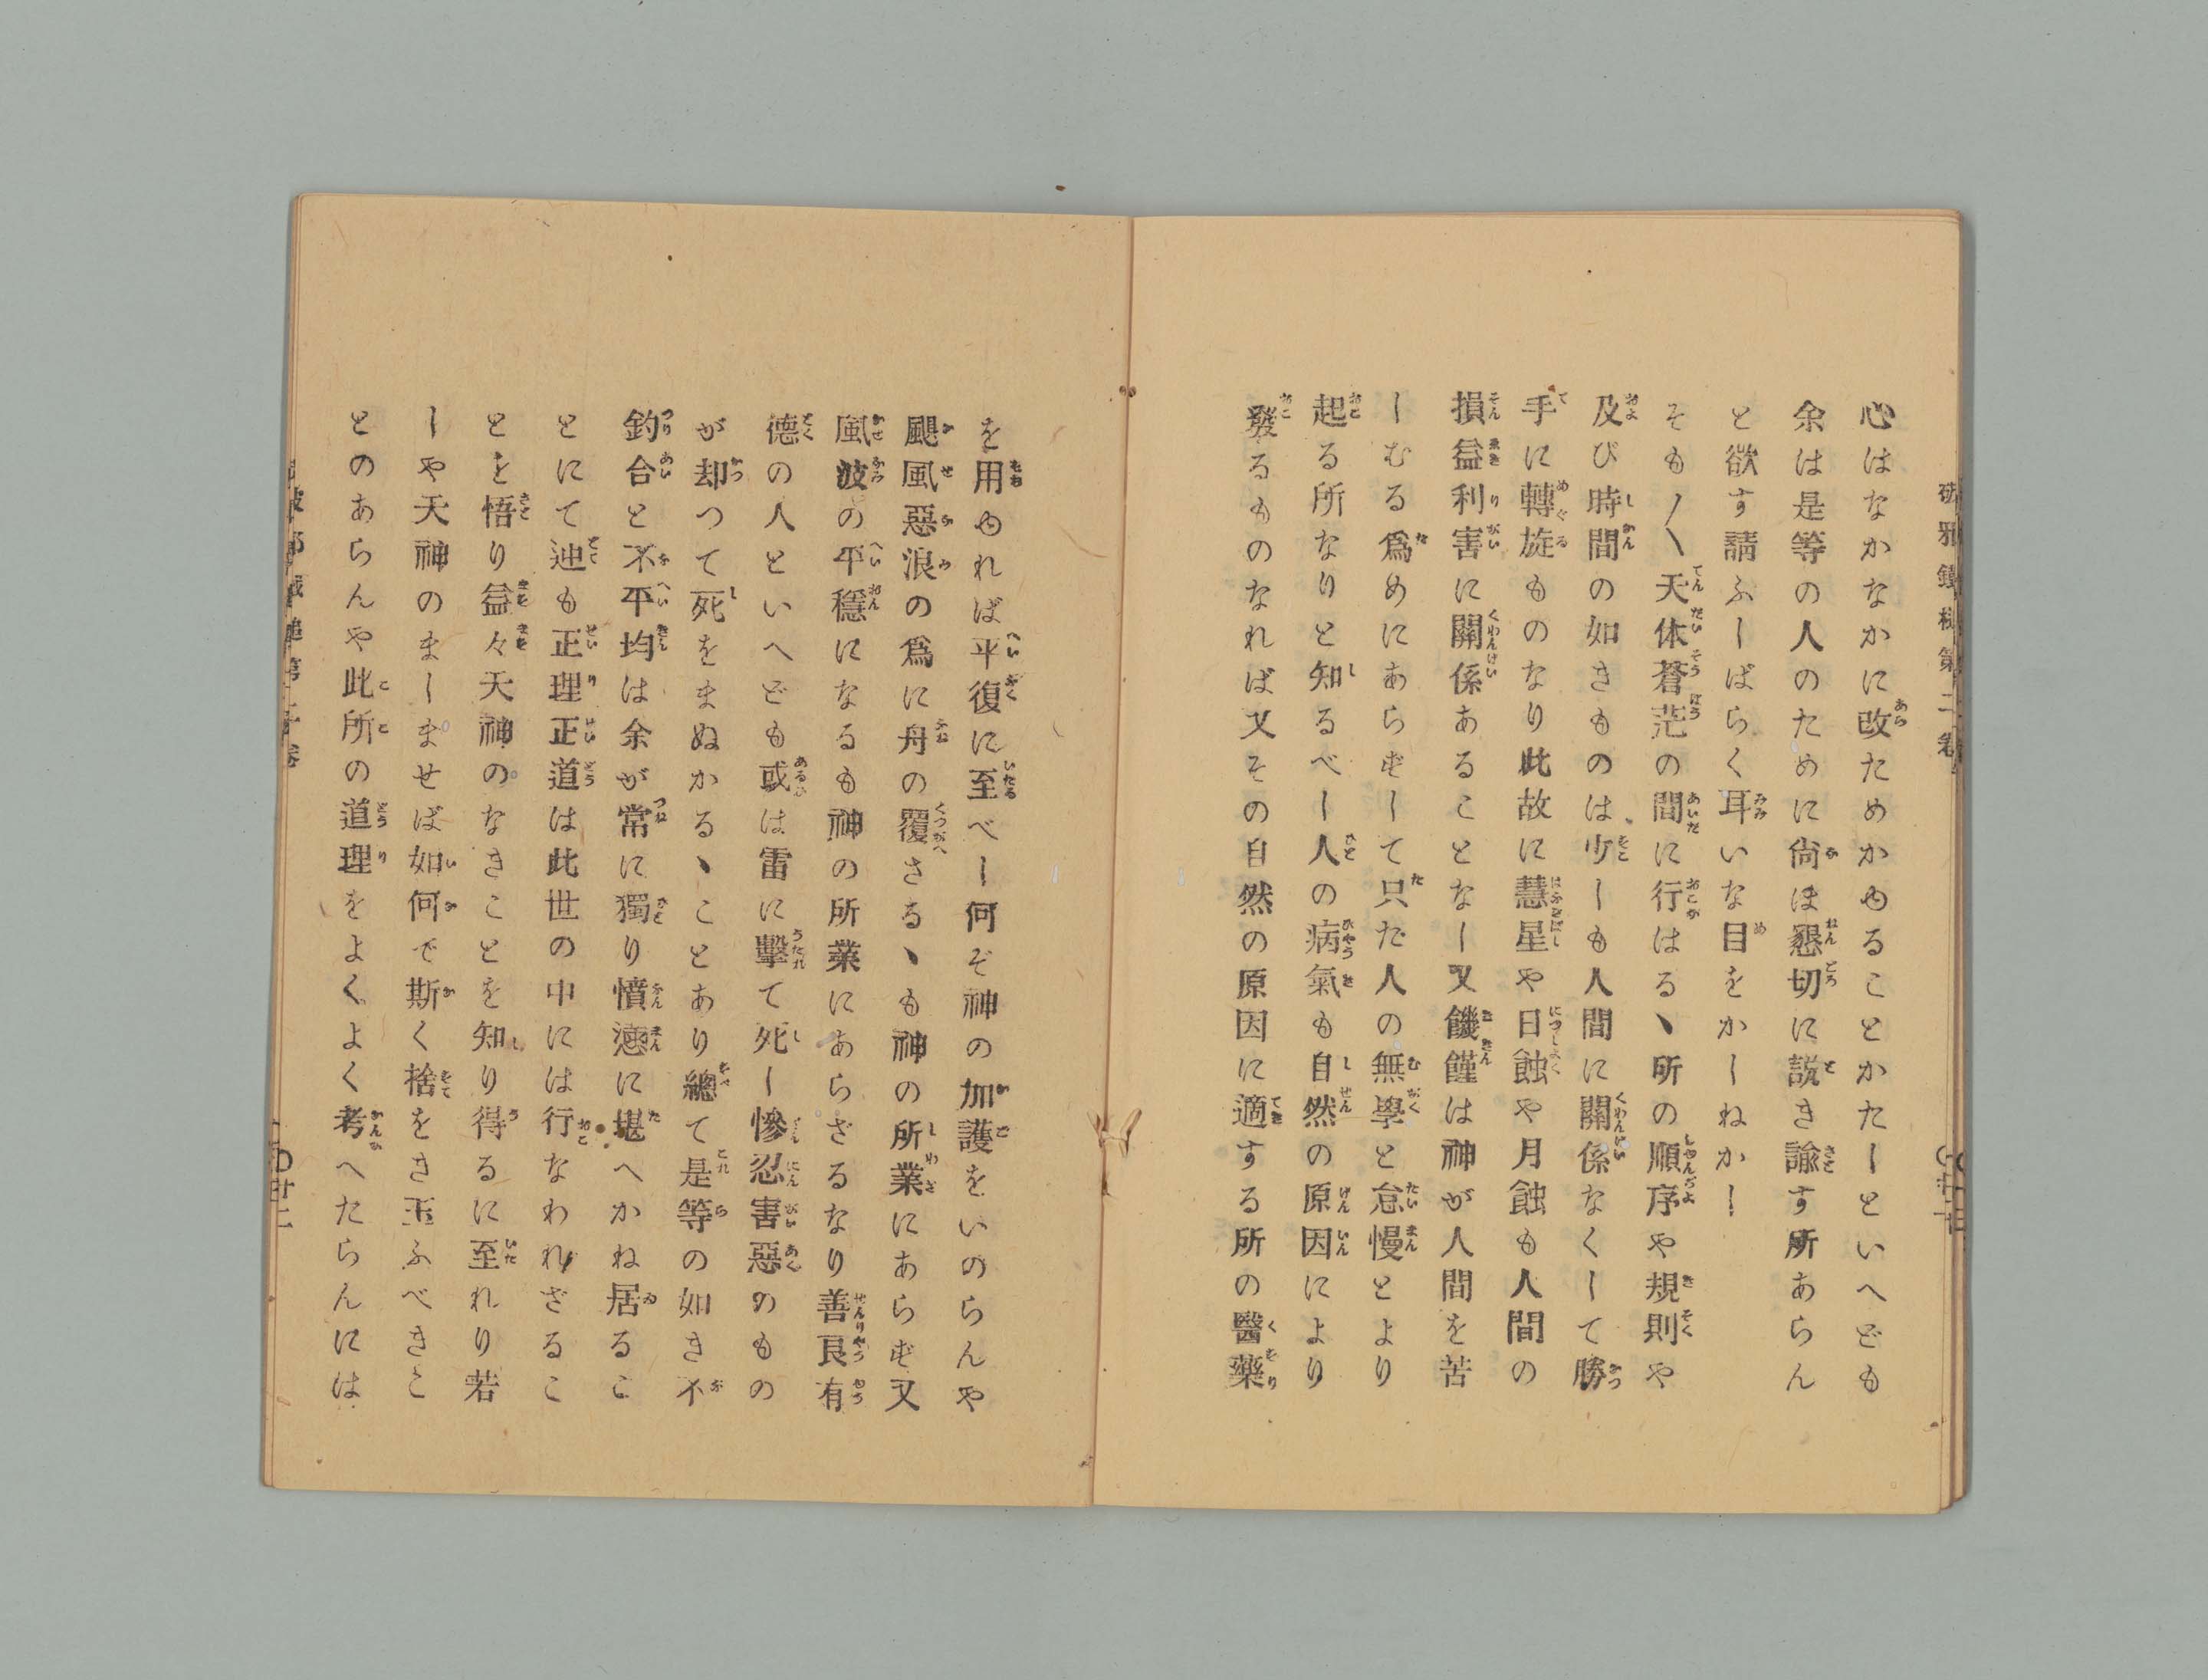 心はなかなかに改ためかゆることかたしといへども
余は是等の人のために尙ほ懇切に説き諭す所あらん
と欲す請ふしばらく耳いな目をかしねかし
そも〳〵天体蒼茫の間に行はるヽ所の順序や規則や
及び時間の如きものは少しも人間に關係なくして勝
手に轉旋ものなり此故に慧星や日蝕や月蝕も人間の
損益利害に關係あることなし又饑饉は神が人間を苦
しむる爲めにあらずして只た人の無學と怠慢とより
起る所なりと知るべし人の病氣も自然の原因により
發るものなれば又その自然の原因に適する所の醫藥
を用ゆれば平復に至べし何ぞ神の加護をいのらんや
颶風惡浪の爲に舟の覆さるヽも神の所業にあらず又
風波の平穩になるも神の所業にあらざるなり善良有
德の人といへども或は雷に擊て死し慘忍害惡のもの
が却つて死をまぬかるヽことあり總て是等の如き不
釣合と不平均は余が常に獨り憤懣に堪へかね居るこ
とにて迚も正理正道は此世の中には行なわれざるこ
とを悟り益々天神のなきことを知り得るに至れり若
しや天神のましませば如何で斯く捨をき玉ふべきこ
とのあらんや此所の道理をよくよく考へたらんには